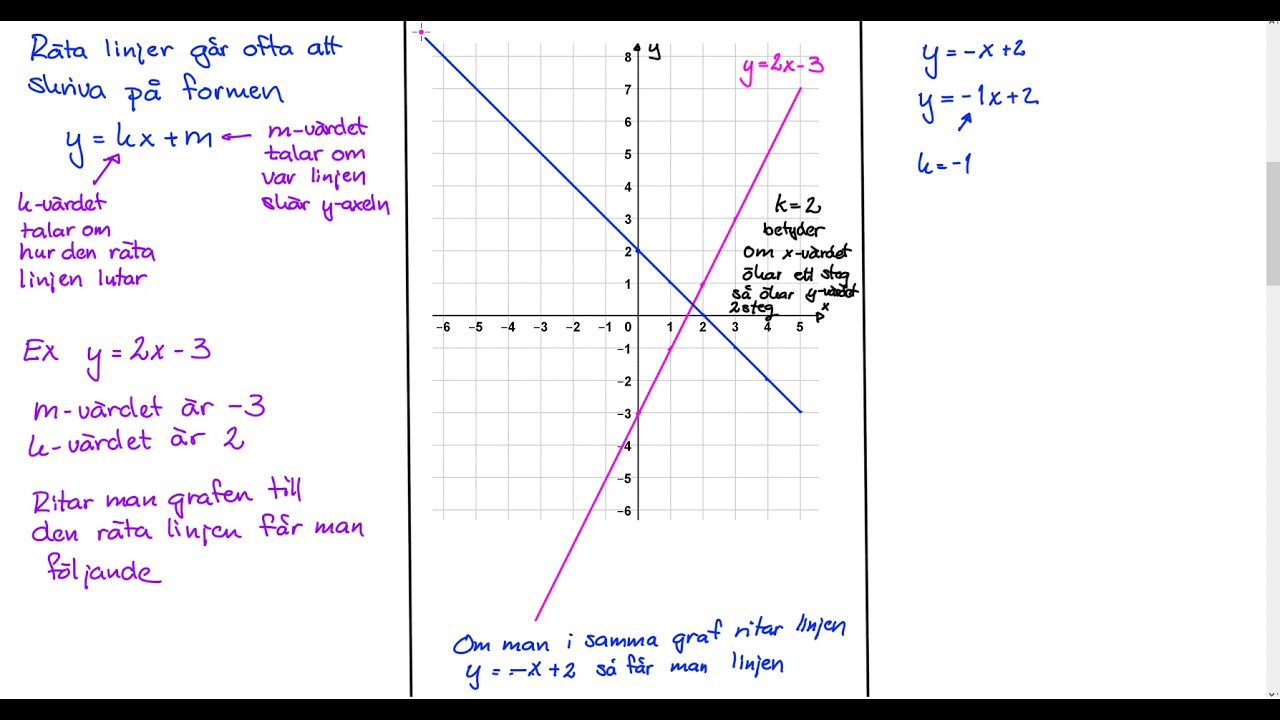 Räta linjer går ofta att
skriva på formen
y = kx + m ← m-värdet
talar om
var linjen
skär y-axeln
k-värdet
talar om
hur den räta
linjen lutar
Ex y = 2x - 3
m-värdet är -3
k-värdet är 2
Ritar man grafen till
den räta linjen får man
följande
y
y=2x-3
8
7
6
5
4
3
2
1
−6 −5 −4 −3 −2 −1 0 1 2 3 4 5
−1
−2
−3
−4
−5
−6
k=2
betyder
Om x-värdet
ökar ett steg
så ökar y-värdet
2 steg
x
Om man i samma graf ritar linjen
y = -x + 2 så får man linjen
y = -x + 2
y = -1x + 2
k = -1